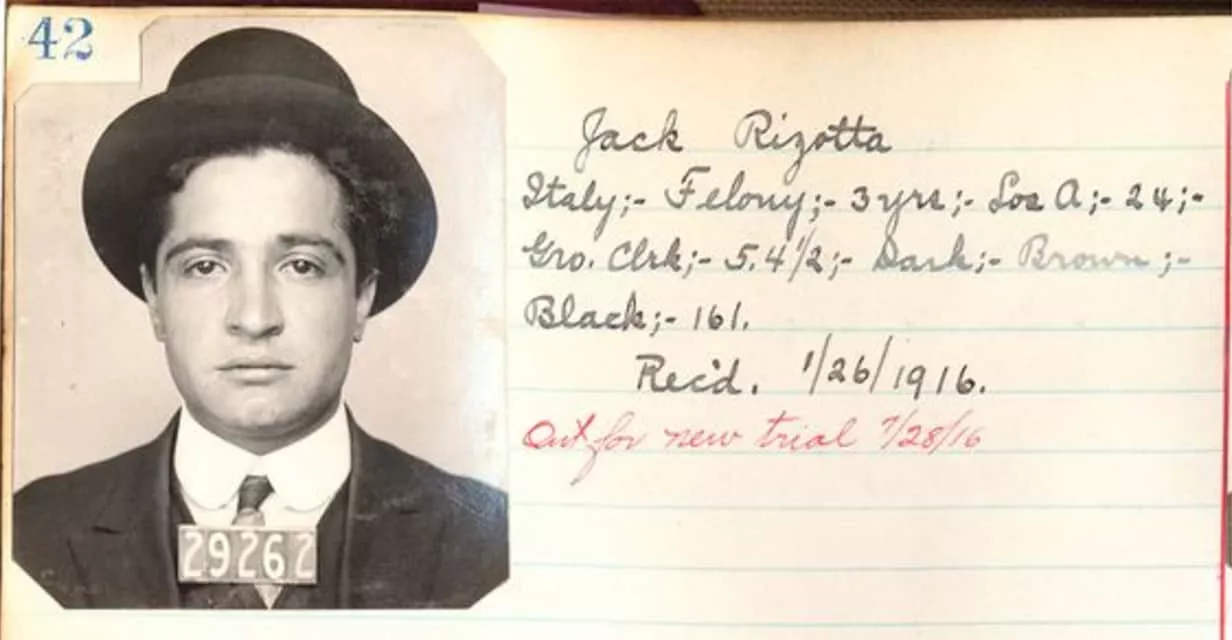 42
Jack Rizotta
Italy;- Felony;- 3 yrs;- Los A;- 24;-
Gro. Clrk;- 5.4 1/2;- Dark;- Brown;-
Black;- 161.
Rec'd. 1/26/1916.
Out for new trial 7/28/16
29262